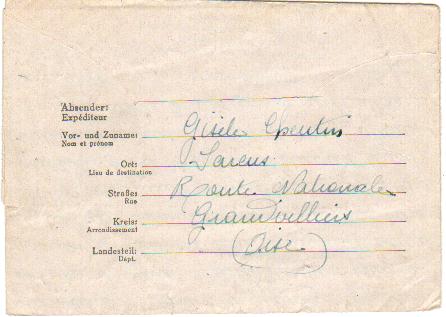 Absender:
Expéditeur
Vor- und Zuname: Gisèle
Nom et prénom
Ort: Sarcus
Lieu de destination
Straße: Route Nationale
Rue
Kreis: Grandvilliers
Arrondissement
Landesteil: (Oise)
Dépt.